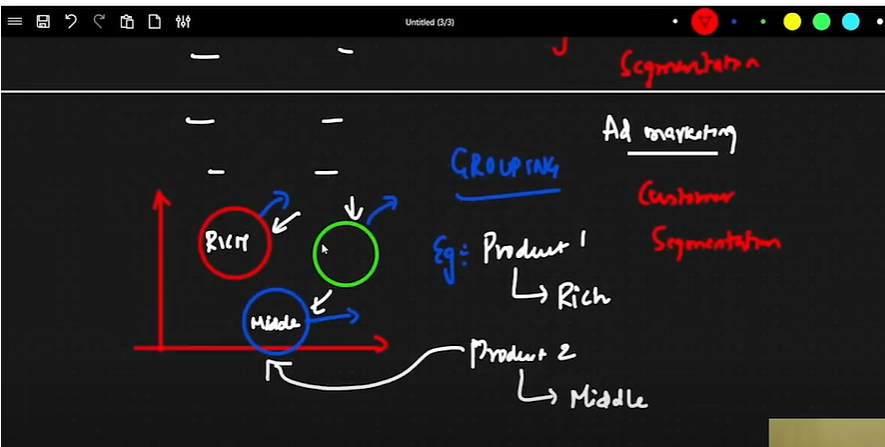 Untitled (3/3)
Segmentation
Ad marketing
GROUPING
Customer
Segmentation
RICH
Eg:- Product 1
Rich
Middle
Product 2
Middle